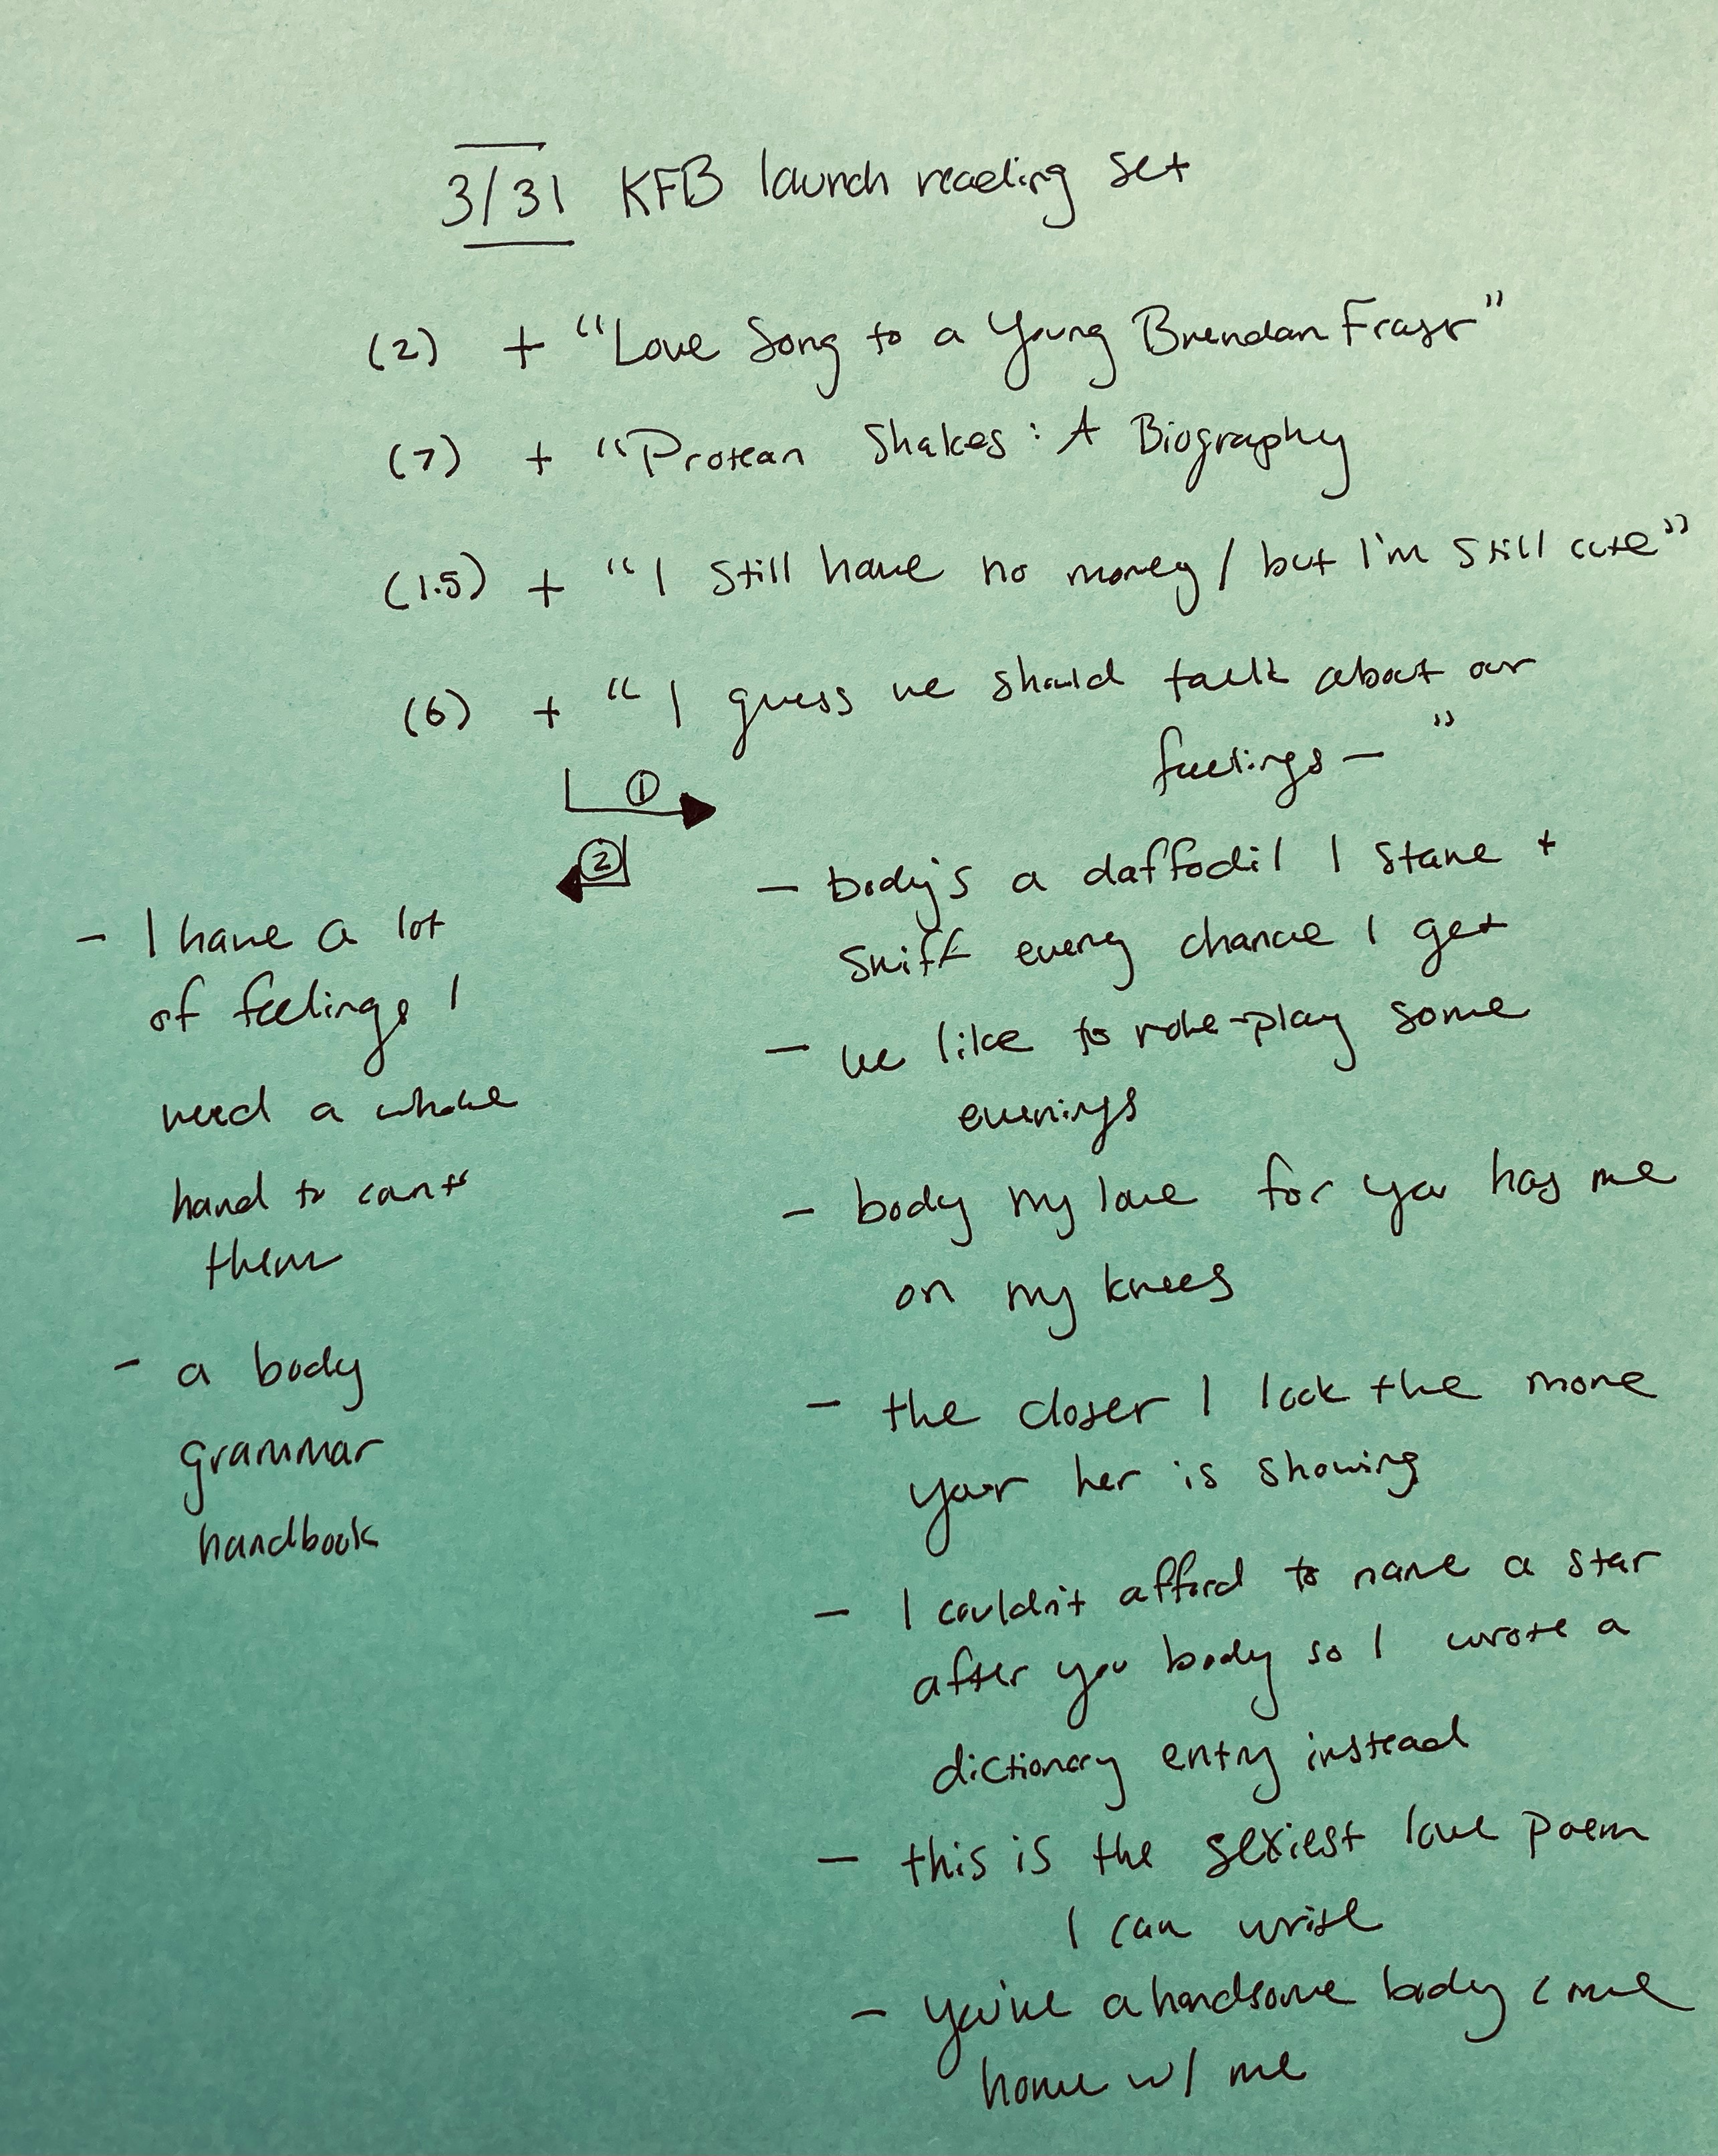 3/31 KFB launch reading set
(2) + "Love Song to a Young Brendan Fraser"
(7) + "Protean Shakes: A Biography
(1.5) + "I still have no money / but I'm still cute"
(6) + "I guess we should talk about our
feelings — "
①
②
— body's a daffodil I stare +
sniff every chance I get
— we like to role-play some
evenings
— body my love for you has me
on my knees
— the closer I look the more
your her is showing
— I couldn't afford to name a star
after you body so I wrote a
dictionary entry instead
— this is the sexiest love poem
I can write
— you're a handsome body come
home w/ me
- I have a lot
of feelings I
need a whole
hand to count
them
- a body
grammar
handbook